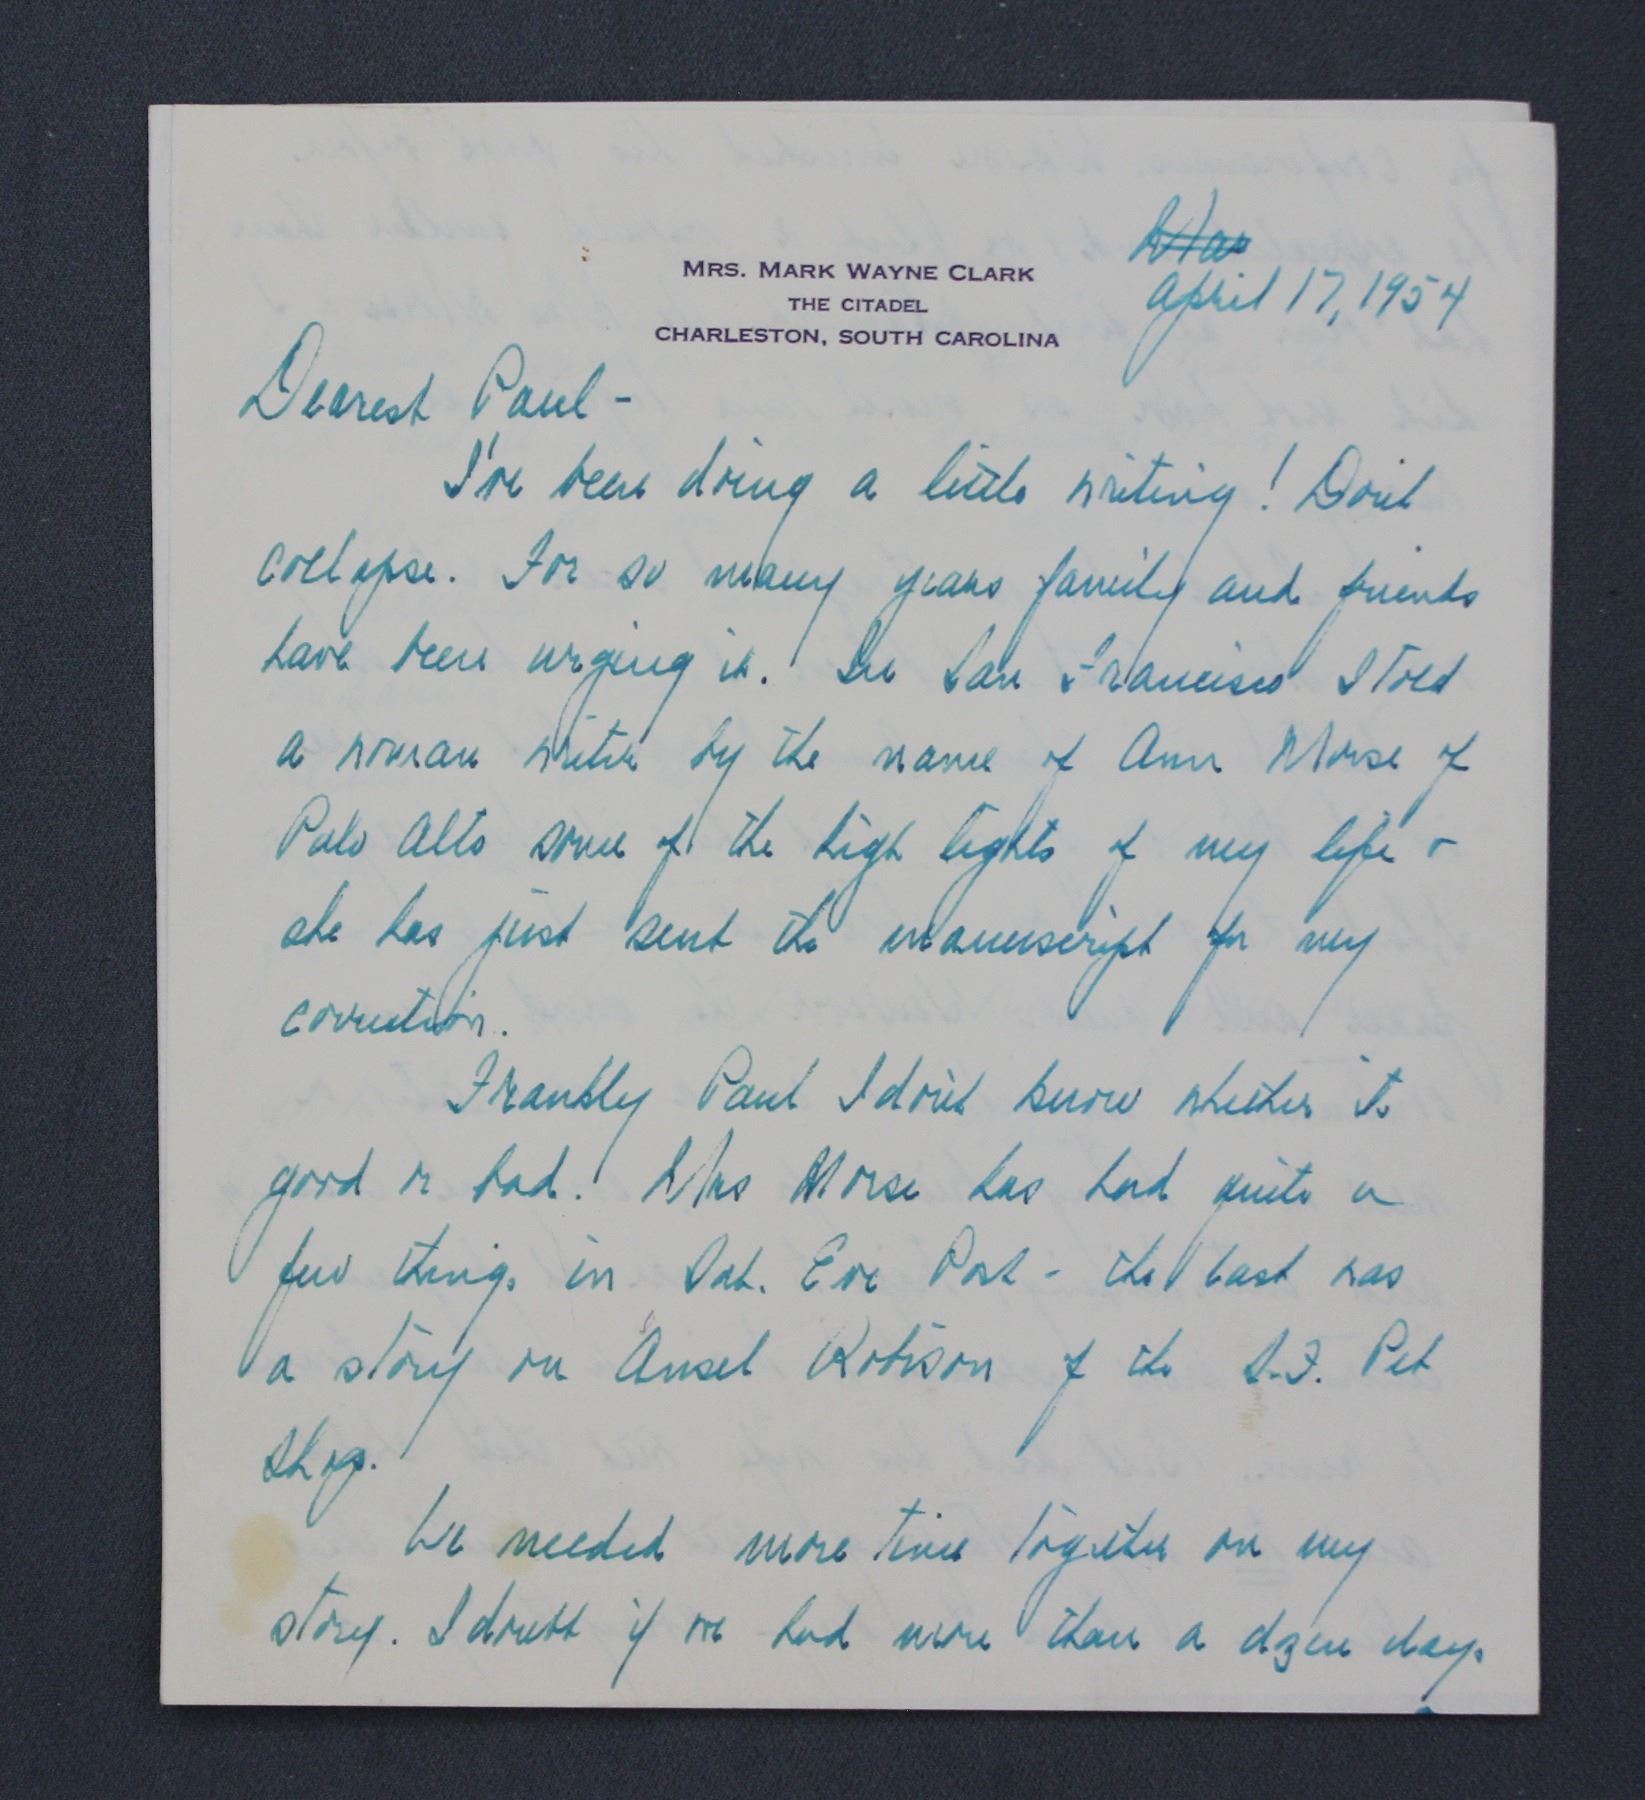 MRS. MARK WAYNE CLARK
THE CITADEL
CHARLESTON, SOUTH CAROLINA
April 17, 1954
Dearest Paul -
I've been doing a little writing! Don't
collapse. For so many years family and friends
have been urging it. In San Francisco I told
a woman writer by the name of Ann Morse of
Palo Alto some of the high lights of my life &
she has just sent the manuscript for my
correction.
Frankly Paul I don't know whether its
good or bad. Mrs Morse has had quite a
few things in Sat. Eve Post - the last was
a story on Ansel Robison of the S.F. Pet
Shop.
We needed more time together on my
story. I doubt if we had more than a dozen days